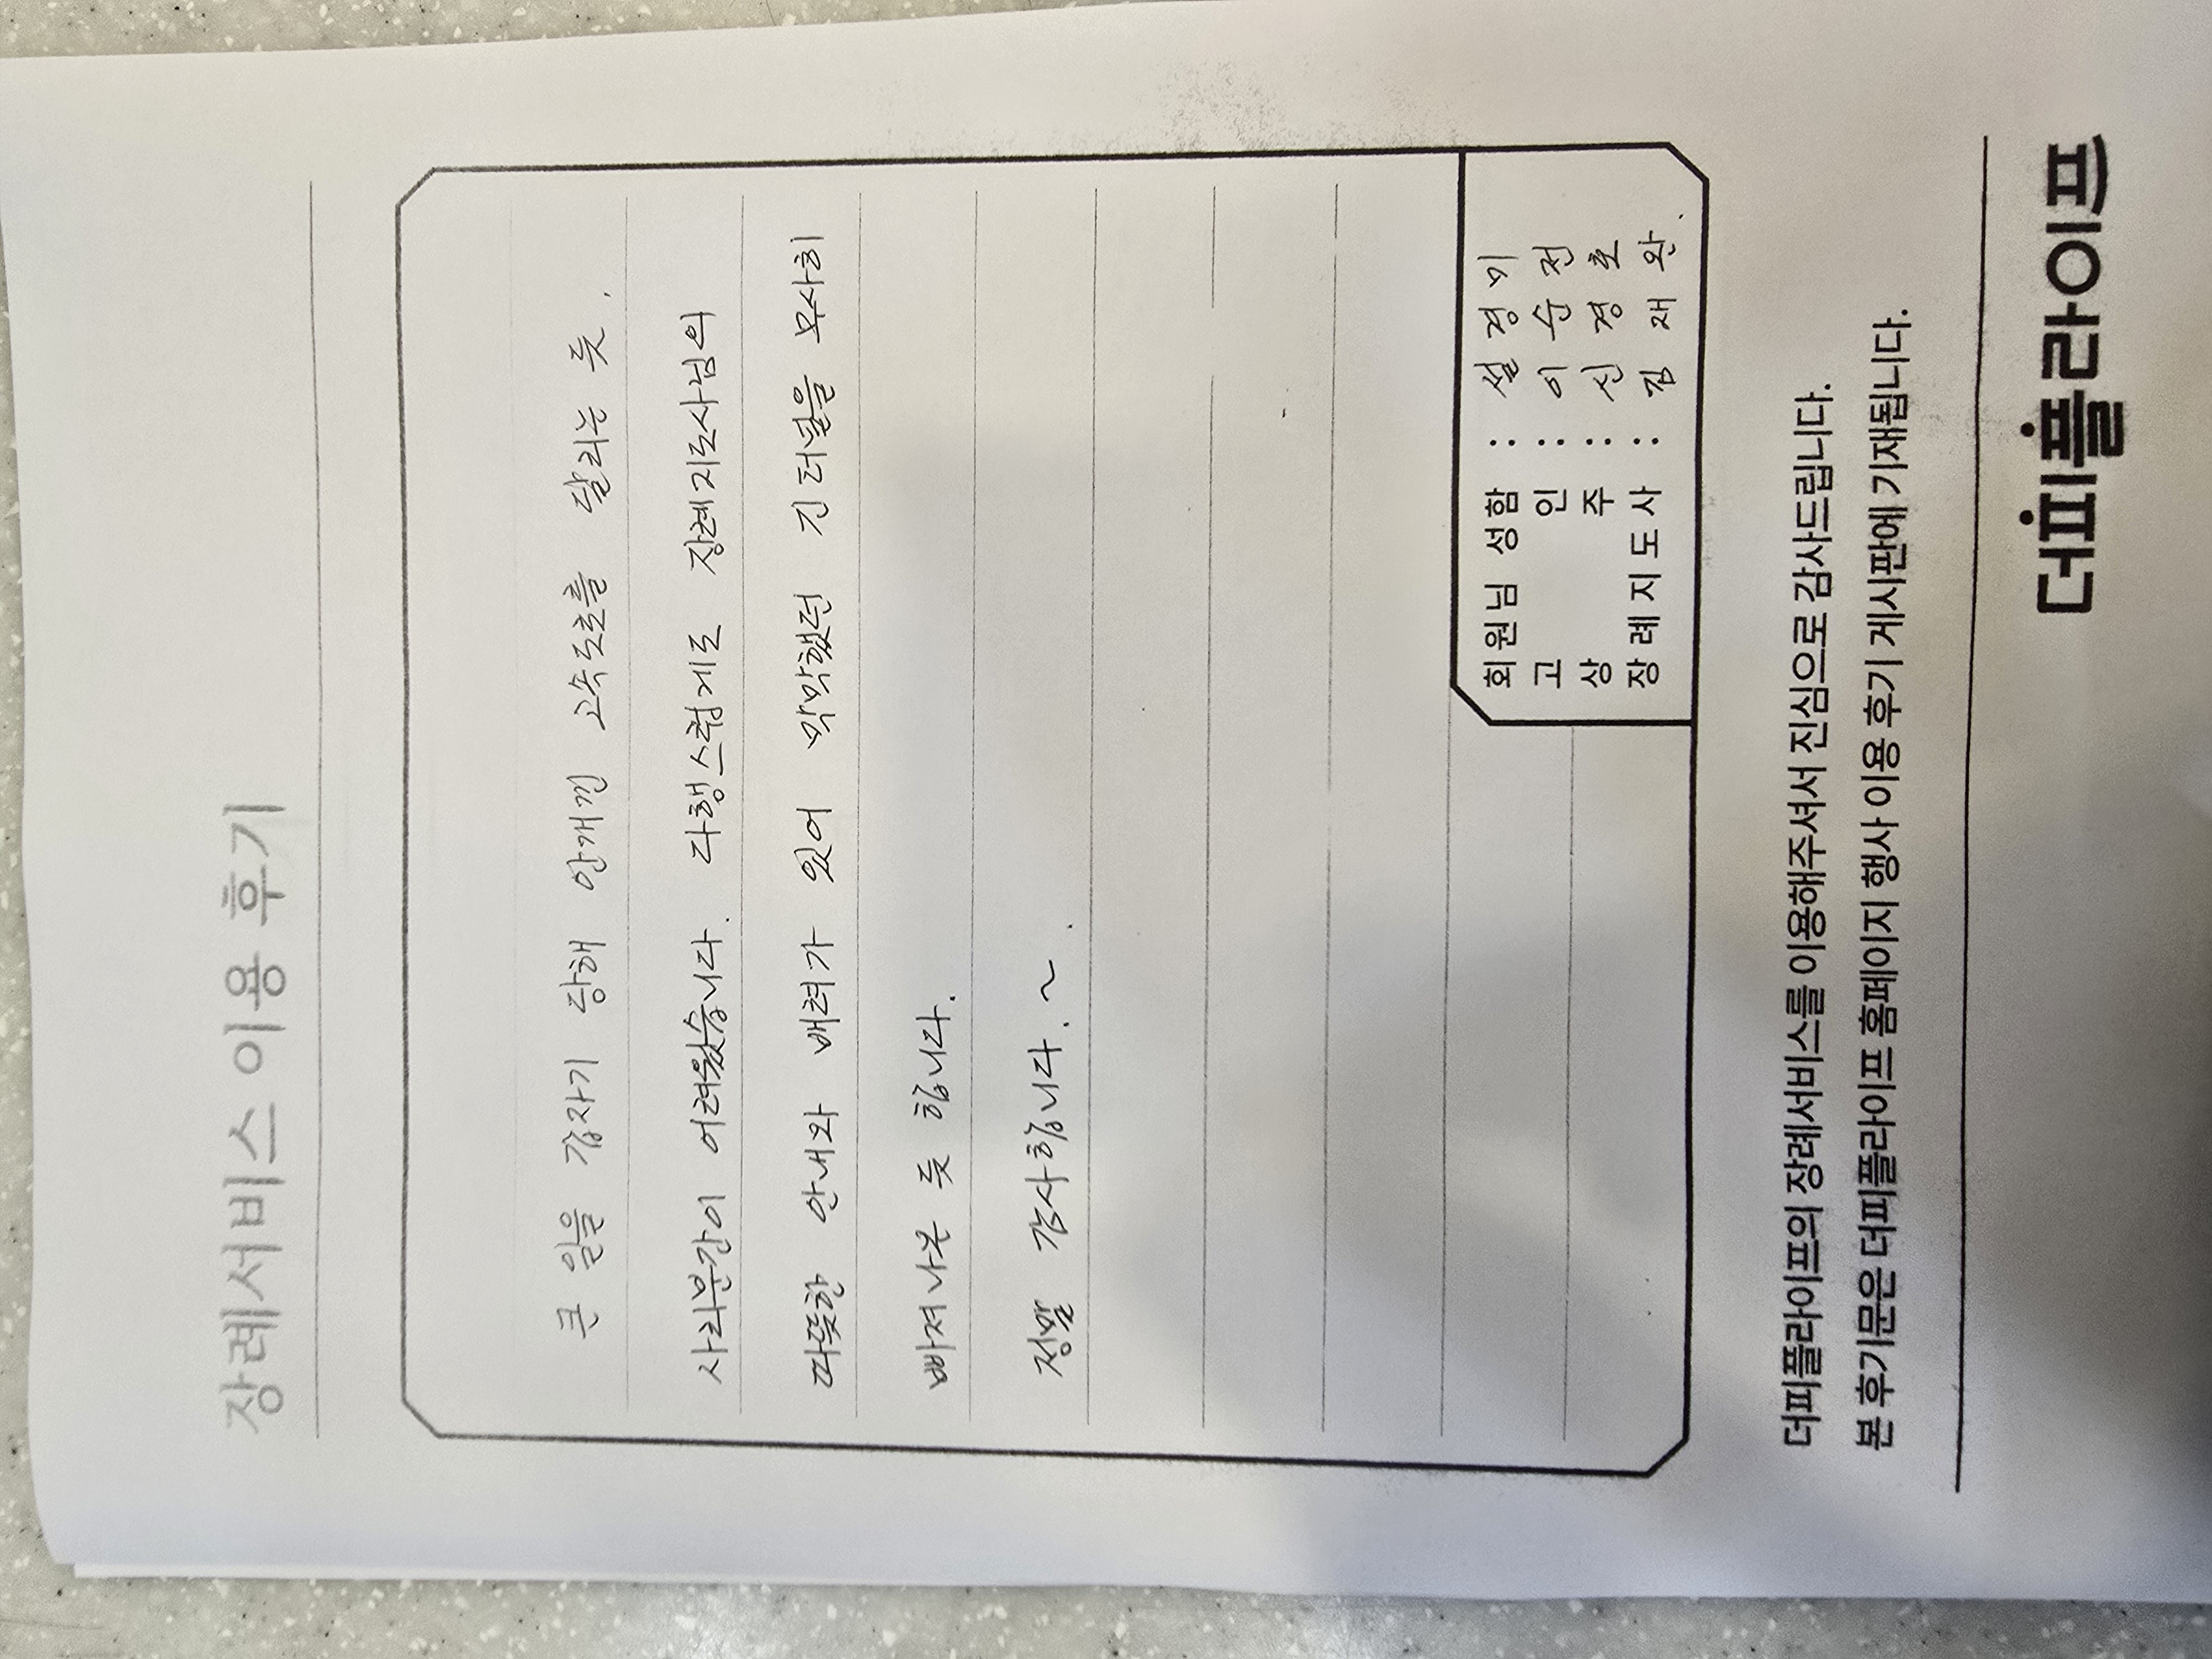 장례서비스 이용 후기
큰 일을 갑자기 당해 안개낀 고속도로를 달리는 듯.
사리분간이 어려웠습니다. 다행스럽게도 장례지도사님의
따뜻한 안내와 배려가 있어 막막했던 긴 터널을 무사히
빠져나온 듯 합니다.
정말 감사합니다.~.
회원님 성함 : 설경미
고인 : 이순전
상주 : 신경호
장례지도사 : 김재완.
더피플라이프의 장례서비스를 이용해주셔서 진심으로 감사드립니다.
본 후기문은 더피플라이프 홈페이지 행사 이용 후기 게시판에 기재됩니다.
더피플라이프